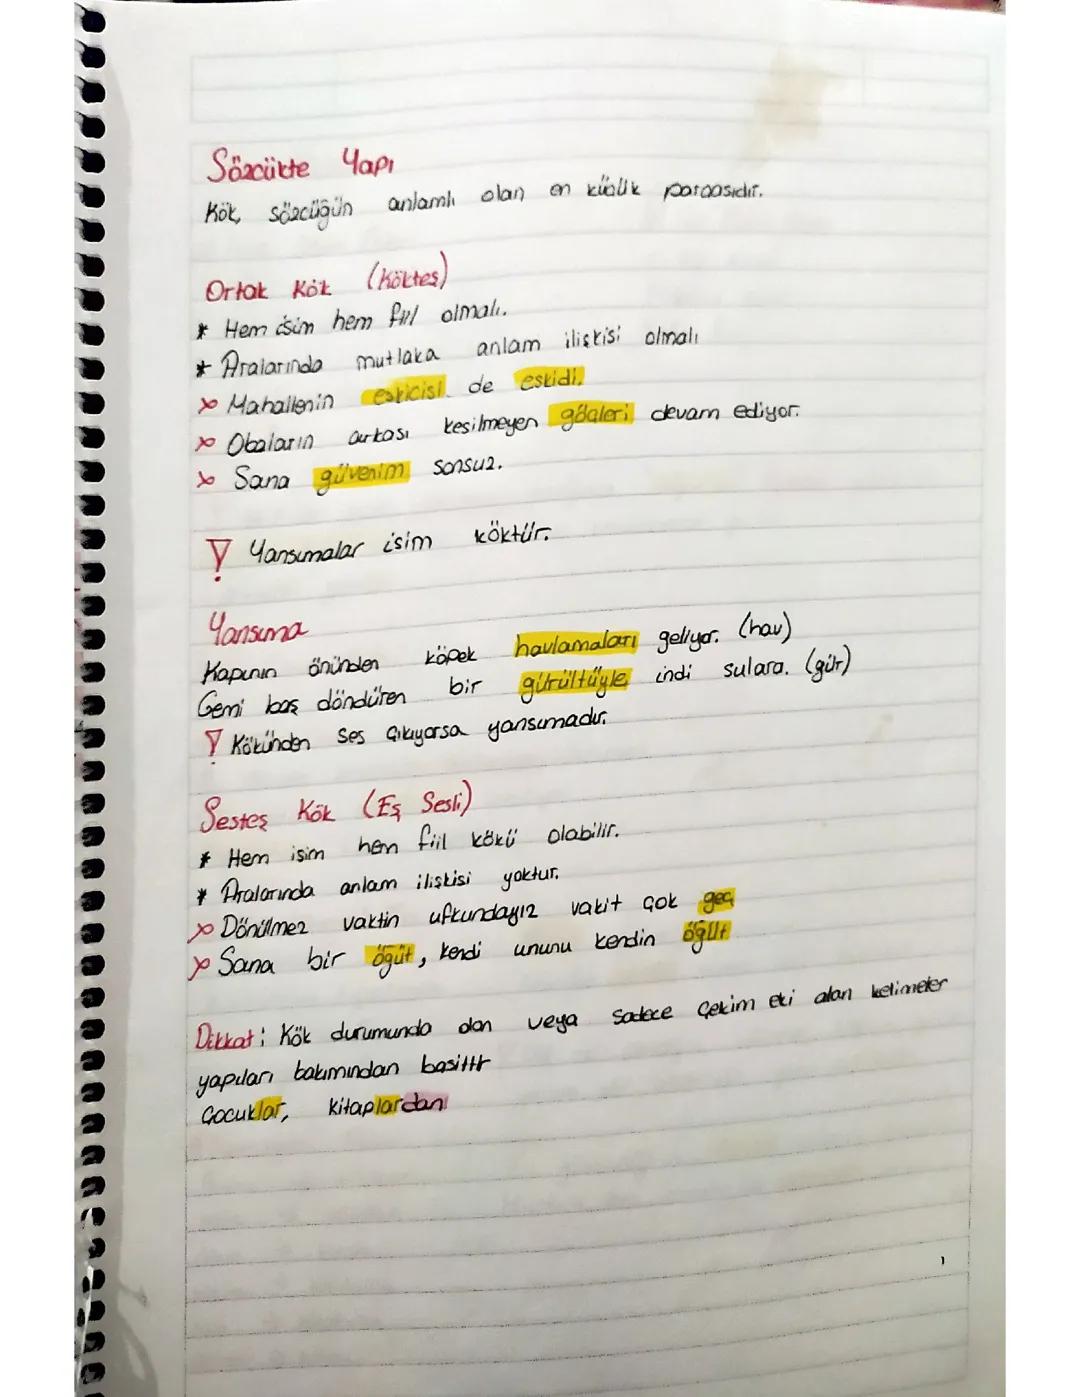 Sözcükte Yapı
Kök, sözcüğün anlamlı olan en küçük parçasıdır.
Ortak Kök (Kökteş)
* Hem isim hem fiil olmalı.
* Aralarında mutlaka anlam ilişkisi olmalı
x Mahallenin eskicisi de eskidi.
x Obaların arkası kesilmeyen göçleri devam ediyor.
x Sana güvenim sonsuz.
! Yansımalar isim köktür.
Yansıma
Kapının önünden köpek havlamaları geliyor. (hav)
Gemi baş döndüren bir gürültüyle indi sulara. (gür)
! Kökünden ses çıkıyorsa yansımadır.
Sesteş Kök (Eş Sesli)
* Hem isim hem fiil kökü olabilir.
* Aralarında anlam ilişkisi yoktur.
x Dönülmez vaktin ufkundayız vakit çok geç
x Sana bir öğüt, kendi ununu kendin öğüt
Dikkat: Kök durumunda olan veya sadece çekim eki alan kelimeler
yapıları bakımından basittir
Çocuklar, kitaplardan